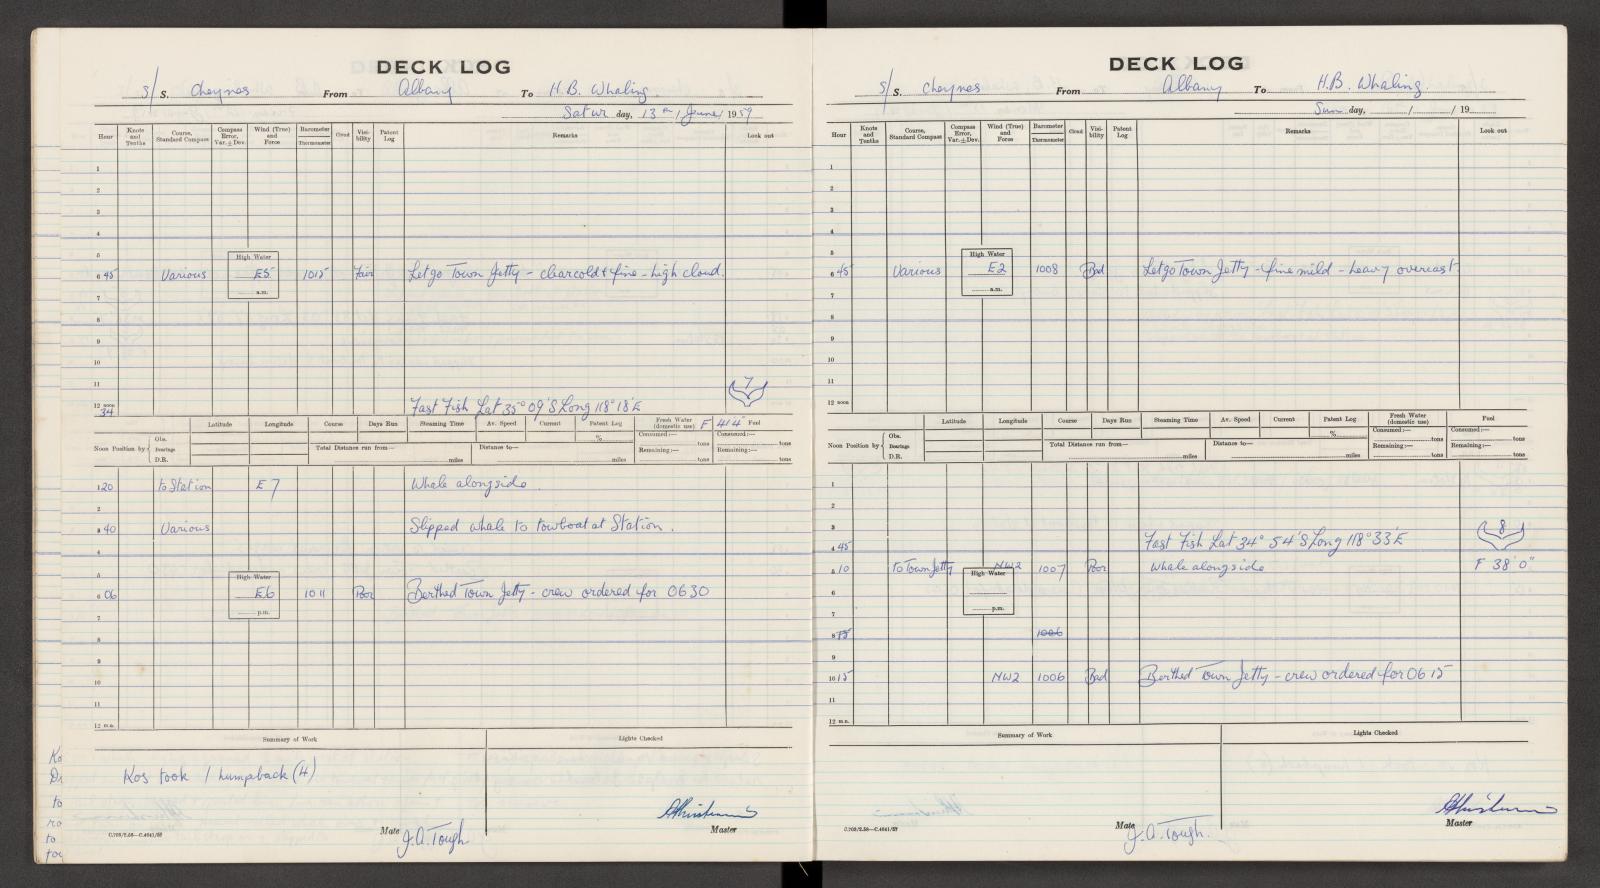 DECK LOG
S/S. Cheynes From Albany To H.B. Whaling.
Satur day, 13th / June / 1959
Hour Knots and Tenths Course, Standard Compass Compass Error, Var. ± Dev. Wind (True) and Force Barometer Thermometer Cloud Visibility Patent Log Remarks Look out
1
2
3
4
5 High Water
6 45 Various E5 1015 Fair Let go Town Jetty - clear cold & fine - high cloud.
a.m.
7
8
9
10
11 7
12 noon
34 Fast Fish Lat 35° 09'S Long 118° 18'E
F 41'4"
Latitude Longitude Course Days Run Steaming Time Av. Speed Current Patent Log Fresh Water (domestic use) Fuel
Noon Position by Obs. Bearings D.R. Total Distance run from— miles Distance to— miles % Consumed :— tons Remaining :— tons Consumed :— tons Remaining :— tons
1 20 to Station E 7 Whale alongside.
2
3 40 Various Slipped whale to towboat at Station.
4
5 High Water
6 06 E6 1011 Poor Berthed Town Jetty - crew ordered for 0630
p.m.
7
8
9
10
11
12 m.n.
Summary of Work Lights Checked
Kos took 1 humpback (4)
Mate J.A. Tough Master
C.709/2.58—C.4641/57
DECK LOG
S/S. Cheynes From Albany To H.B. Whaling.
Sun day, / / 19
Hour Knots and Tenths Course, Standard Compass Compass Error, Var. ± Dev. Wind (True) and Force Barometer Thermometer Cloud Visibility Patent Log Remarks Look out
1
2
3
4
5 High Water
6 45 Various E2 1008 Bad Let go Town Jetty - fine mild - heavy overcast.
a.m.
7
8
9
10
11
12 noon
Latitude Longitude Course Days Run Steaming Time Av. Speed Current Patent Log Fresh Water (domestic use) Fuel
Noon Position by Obs. Bearings D.R. Total Distance run from— miles Distance to— miles % Consumed :— tons Remaining :— tons Consumed :— tons Remaining :— tons
1
2
3 8
4 45 Fast Fish Lat 34° 54'S Long 118° 33'E
5 10 to Town Jetty NW2 1007 Poor Whale alongside F 38' 0"
High Water
6
p.m.
7
8 15 1006
9
10 15 NW2 1006 Bad Berthed Town Jetty - crew ordered for 0615
11
12 m.n.
Summary of Work Lights Checked
Mate J.A. Tough. Master
C.709/2.58—C.4641/57